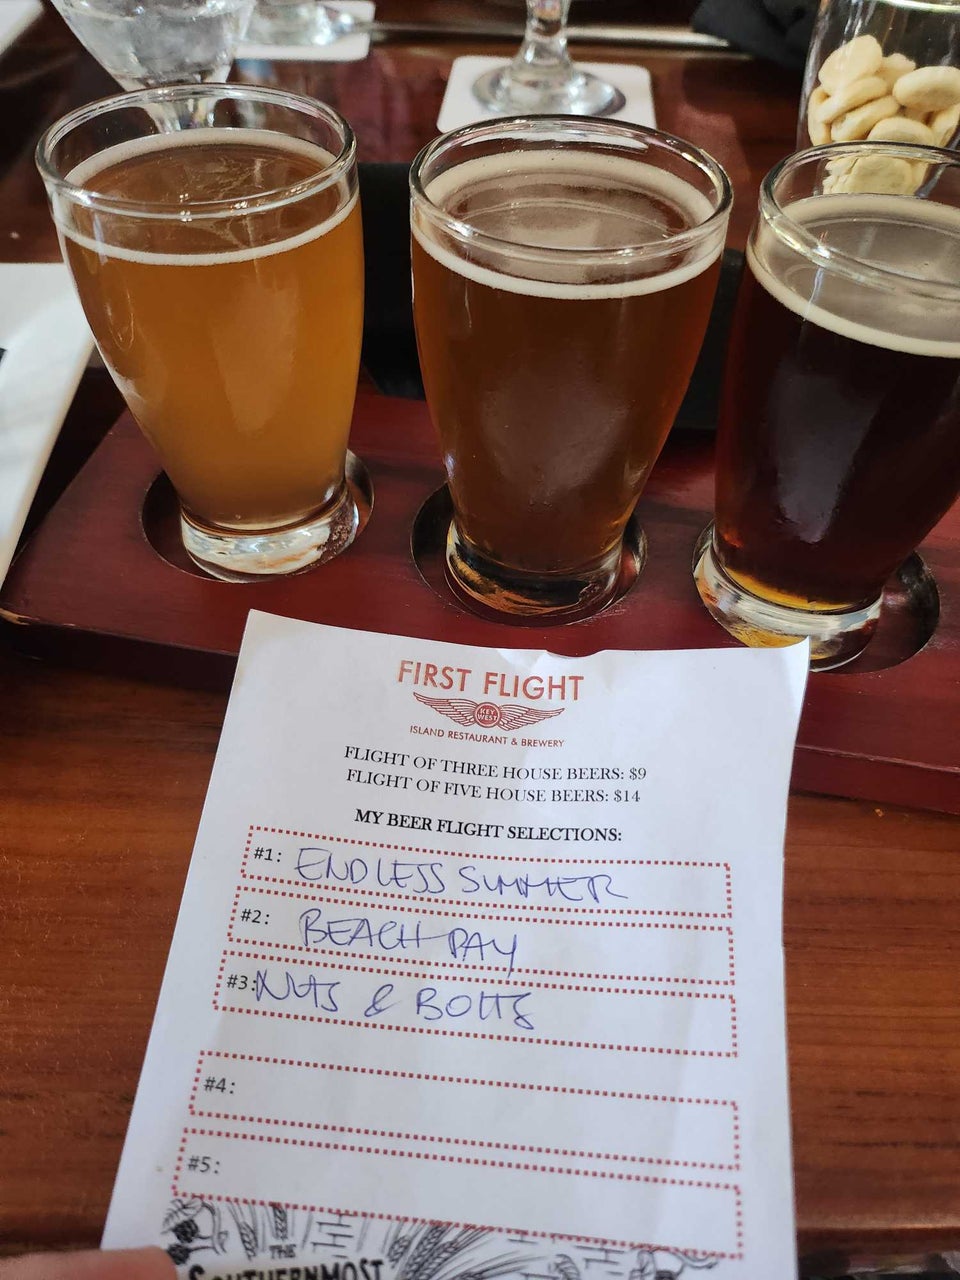 FIRST FLIGHT
KEY
WEST
ISLAND RESTAURANT & BREWERY
FLIGHT OF THREE HOUSE BEERS: $9
FLIGHT OF FIVE HOUSE BEERS: $14
MY BEER FLIGHT SELECTIONS:
#1: ENDLESS SUMMER
#2: BEACH DAY
#3: NUTS & BOLTS
#4:
#5:
THE
SOUTHERNMOST